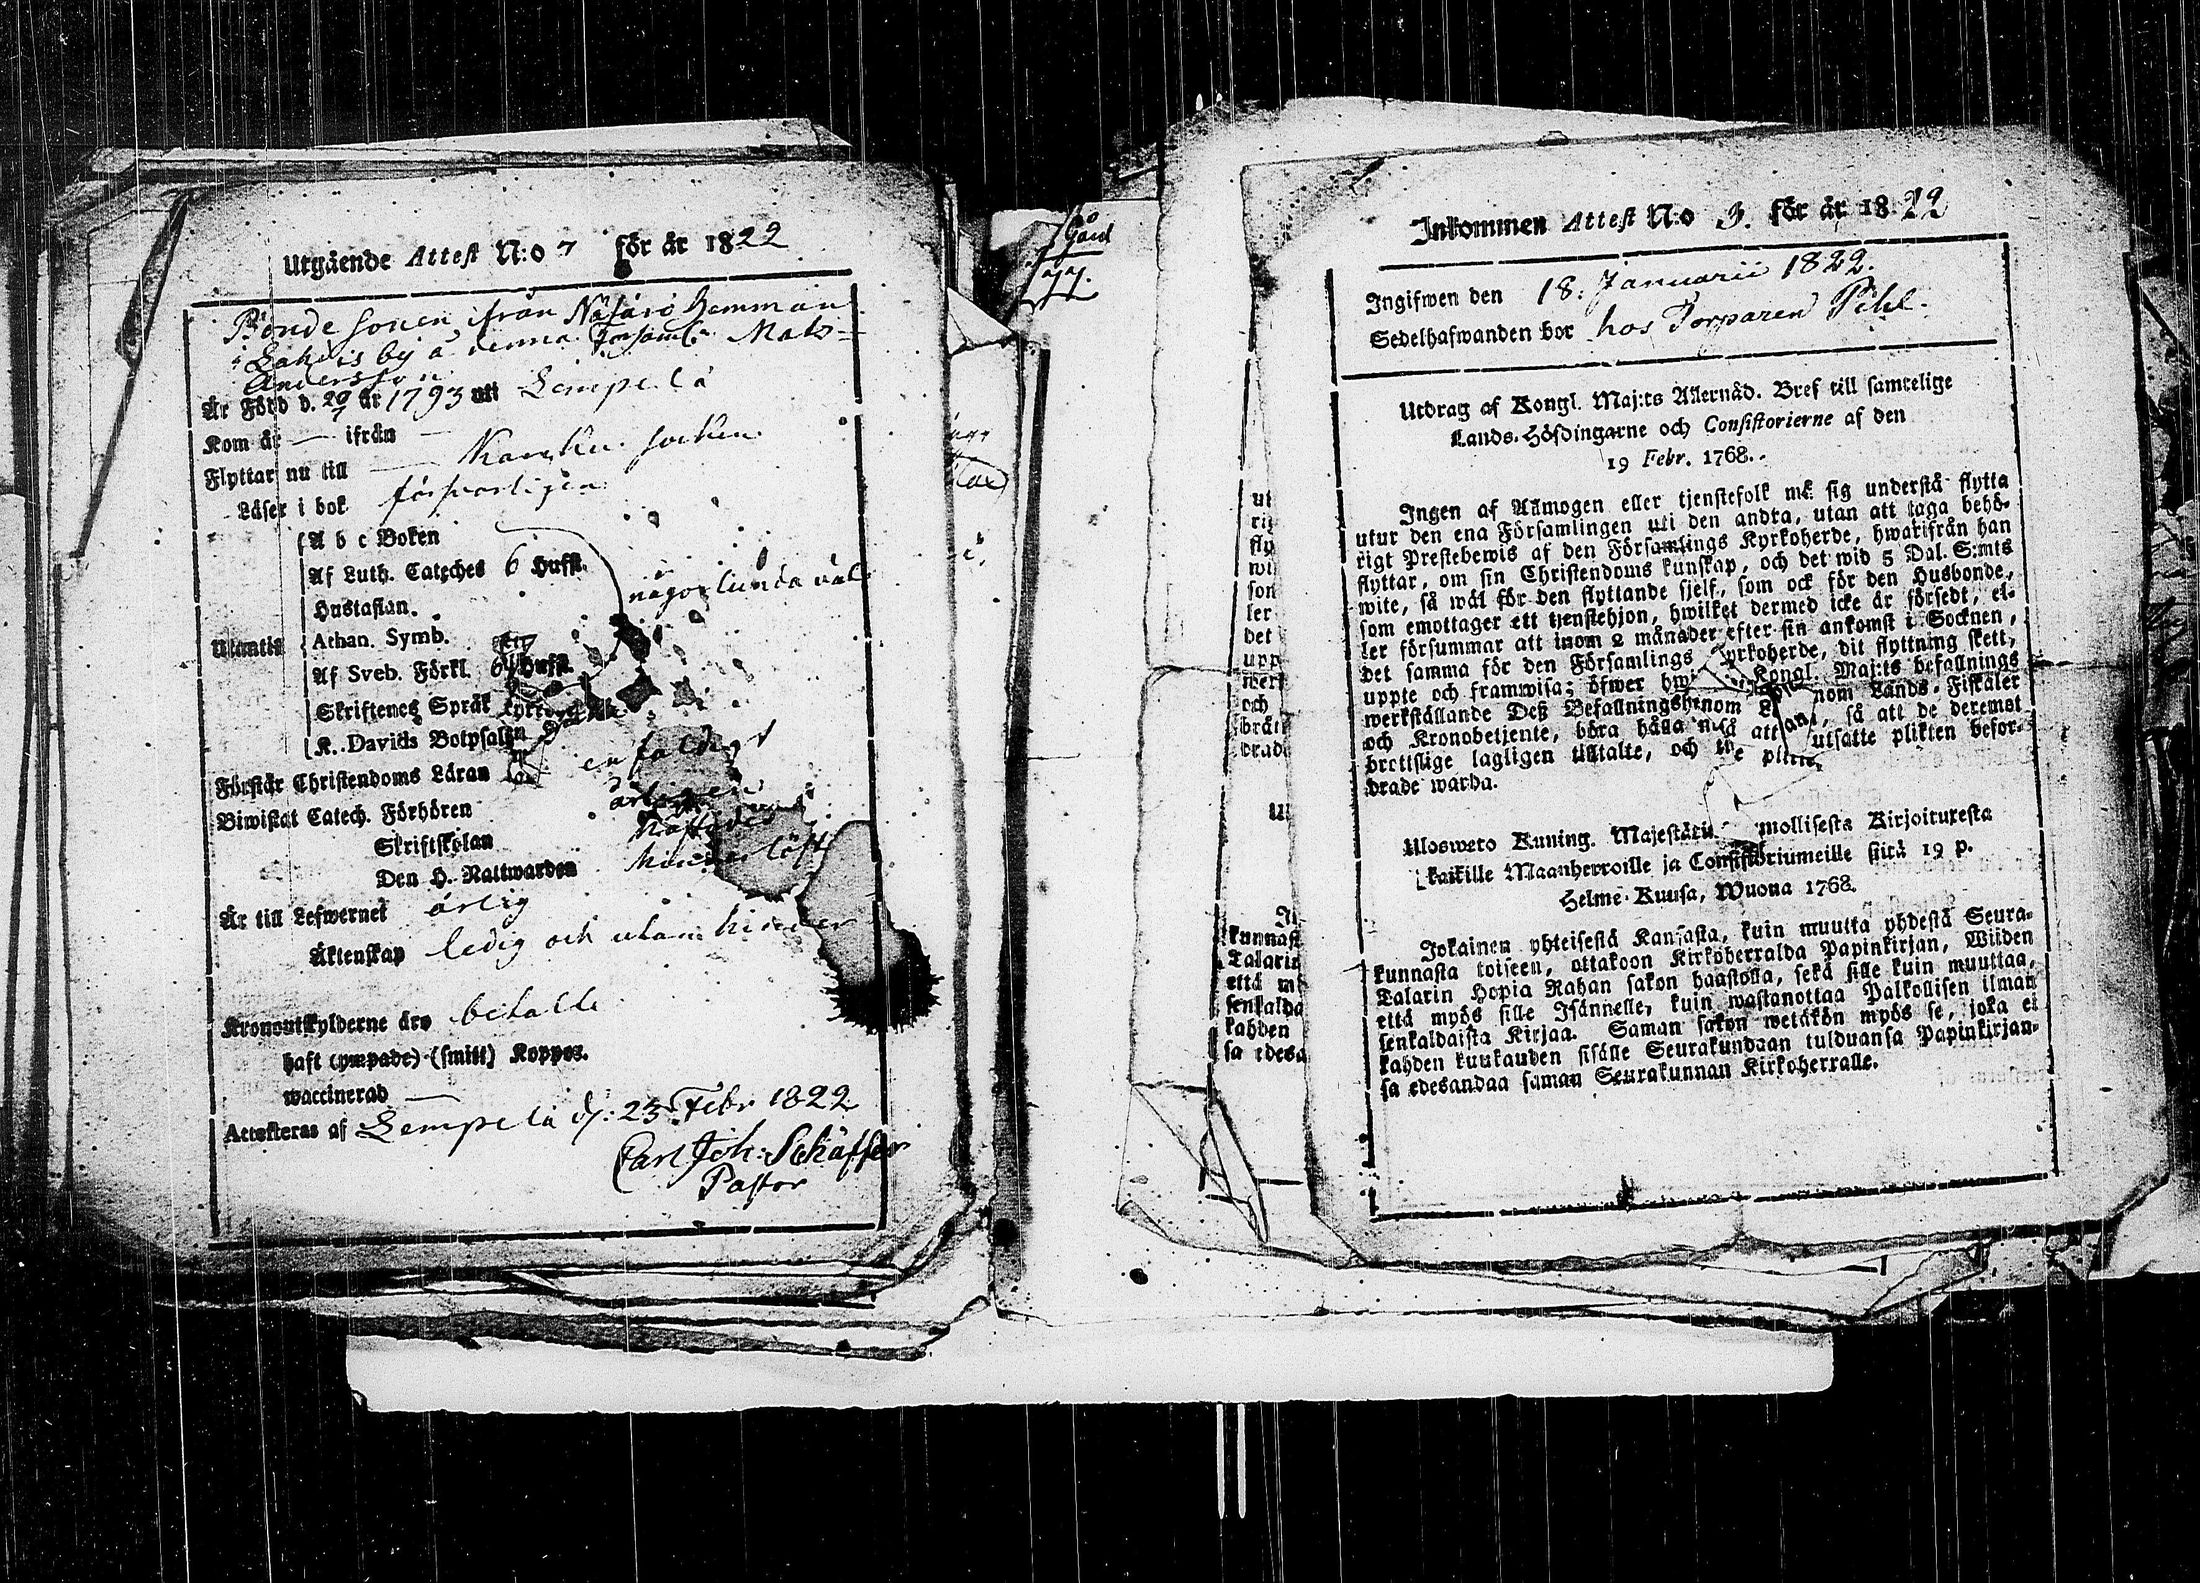 Utgående Attest N:o 7 för år 1822
Bonde sonen ifrån Näfärö Hemman
i Lahdis by å denna Församl: Mats
Andersson
Är Född d. 20/7 år 1793 uti Lempelä
Kom år — ifrån —
Flyttar nu till — Karcku socken
Läser i bok försvarligen
A b c Boken
Af Luth. Cateches 6 Hufst.
någorlunda väl
Hustaflan.
Utantill
Athan. Symb.
Af Sveb. Förkl. 6 Hufst.
Skriftenes Språk
K. Davids Botpsalm
Förstår Christendoms Läran enfaldigt
Biwistat Catech. Förhören årligen
Skriftskolan
Den H. Nattwarden
Är till Lefwernet ärlig
Äktenskap ledig och utan hinder
Kronoutskylderne äro betalte
haft (ympade) (smitt) Koppor.
waccinerad —
Attesteras af Lempelä d: 23 Febr 1822
Carl Joh: Schäffer
Pastor
gård
77.
Inkommen Attest N:o 3. för år 1822
Ingifwen den 18. Januarii 1822.
Sedelhafwanden bor hos Torparen Pihl.
Utdrag af Kongl. Maj:ts Allernåd. Bref till samtelige
Lands-Höfdingarne och Consistorierne af den
19 Febr. 1768.
Ingen af Allmogen eller tjenstefolk må sig understå flytta
utur den ena Församlingen uti den andra, utan att taga behö-
rigt Prestebewis af den Församlings Kyrkoherde, hwarifrån han
flyttar, om sin Christendoms kunskap, och det wid 5 Dal. S:mts
wite, så wäl för den flyttande sjelf, som ock för den Husbonde,
som emottager ett tjenstehjon, hwilket dermed icke är försedt, el-
ler försummar att inom 2 månader efter sin ankomst i Socknen,
det samma för den Församlings Kyrkoherde, dit flyttning skett,
uppte och framwisa; öfwer Kongl. Maj:ts befallnings
werkställande Deß Befallningshinom nom Lands-Fiskaler
och Kronobetjente, böra hålla så att, så att de deremot
brottslige lagligen tilltalte, och utsatte plikten befor-
drade warda.
Uloswето Kuning. Majestätin mollisesta Kirjoituxesta
kaikille Maanherroille ja Consistoriumeille siitä 19 p.
Helme-Kuusa, Wuona 1768.
Jokainen yhteisestä Kansasta, kuin muutta yhdestä Seura-
kunnasta toiseen, ottakoon Kirkoherralda Papinkirjan, Wiiden
Talarin Hopia Rahan sakon haastolla, sekä sille kuin muuttaa,
että myös sille Isännelle, kuin wastanottaa Palkollisen ilman
senkaldaista Kirjaa. Saman sakon wetäkön myös se, joka ei
kahden kuukauden sisälle Seurakundaan tulduansa Papinkirjan-
sa edesandaa saman Seurakunnan Kirkoherralle.